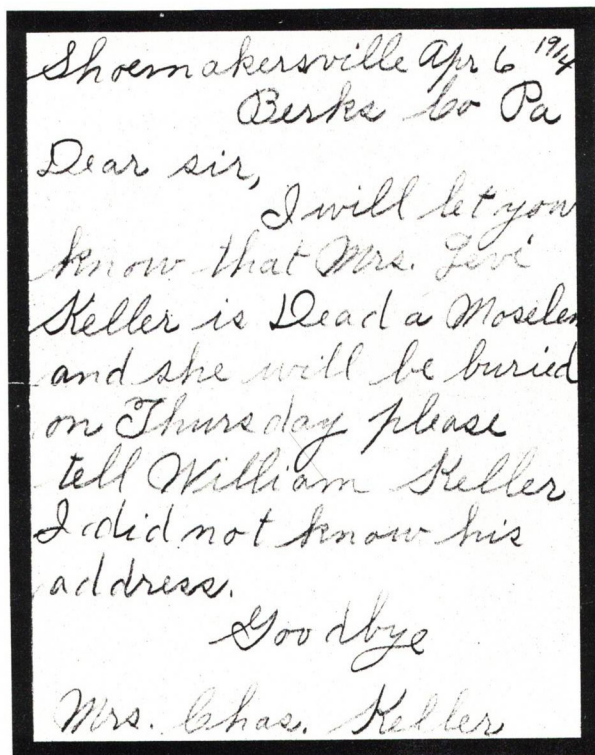 Shoemakersville Apr 6 1914
Berks Co Pa
Dear sir,
I will let you
know that Mrs. Levi
Keller is Dead a Moselem
and she will be buried
on Thursday please
tell William Keller
I did not know his
address.
Goodbye
Mrs. Chas. Keller